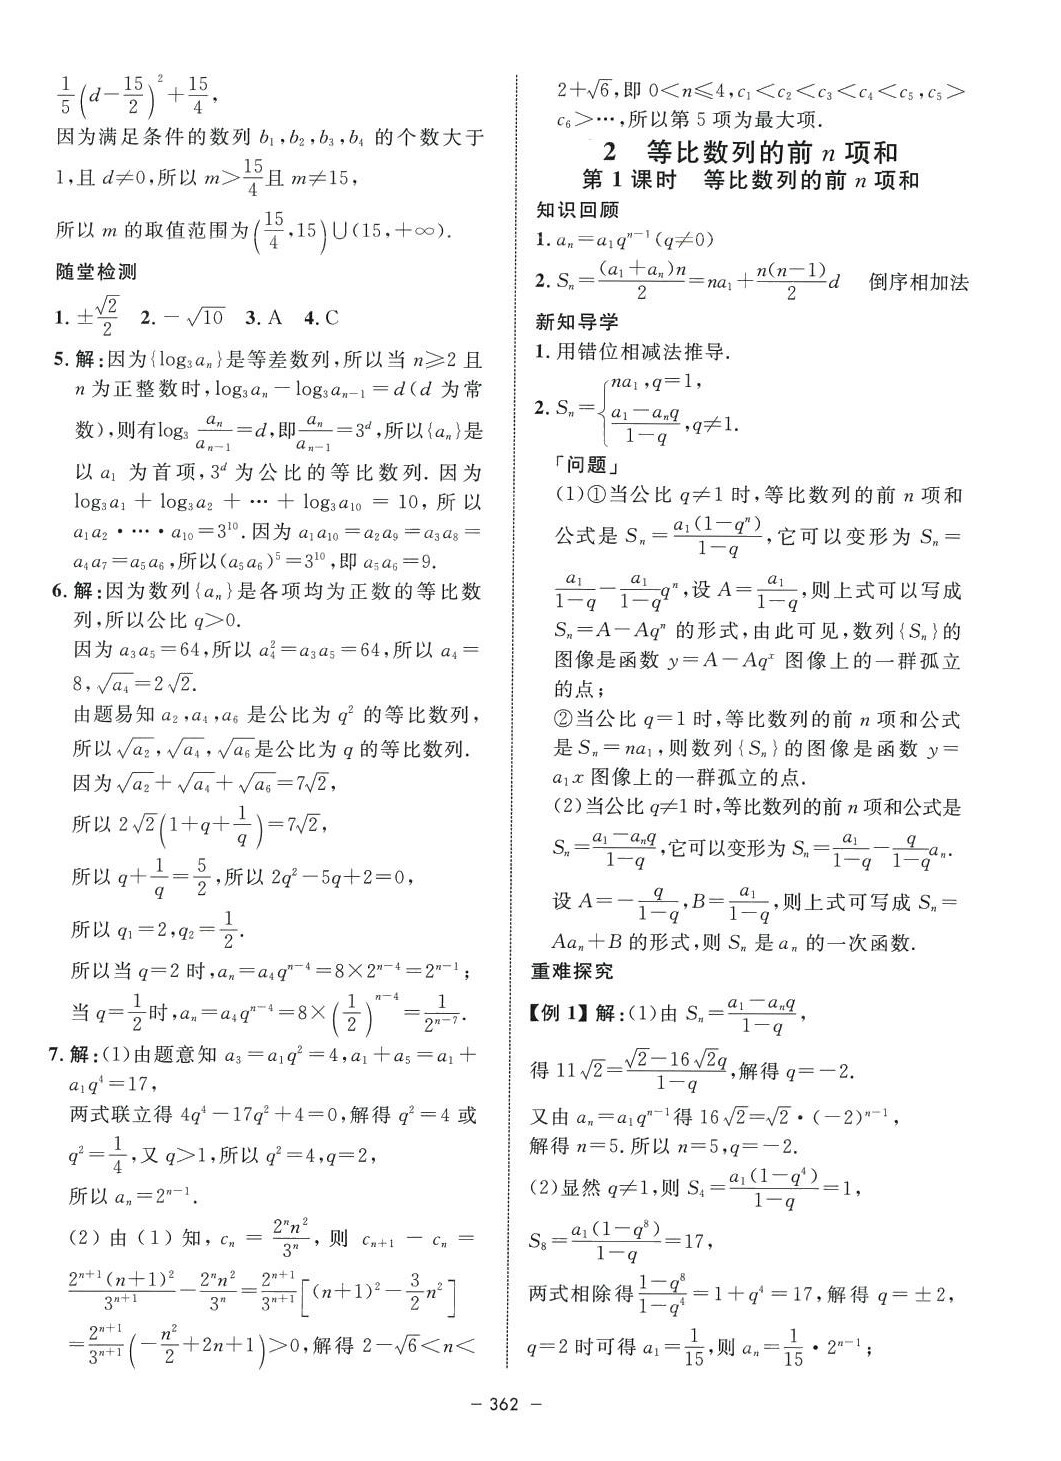 1/5(d-15/2)²+15/4,
因为满足条件的数列 b₁,b₂,b₃,b₄ 的个数大于
1,且 d≠0,所以 m>15/4且 m≠15,
所以 m 的取值范围为(15/4,15)∪(15,+∞).
随堂检测
1. ±√2/2 2. -√10 3. A 4. C
5. 解:因为{log₃aₙ}是等差数列,所以当 n≥2 且
n 为正整数时,log₃aₙ-log₃aₙ₋₁=d(d 为常
数),则有log₃ aₙ/aₙ₋₁=d,即aₙ/aₙ₋₁=3ᵈ,所以{aₙ}是
以 a₁ 为首项,3ᵈ 为公比的等比数列. 因为
log₃a₁+log₃a₂+…+log₃a₁₀=10,所以
a₁a₂·…·a₁₀=3¹⁰.因为 a₁a₁₀=a₂a₉=a₃a₈=
a₄a₇=a₅a₆,所以(a₅a₆)⁵=3¹⁰,即 a₅a₆=9.
6. 解:因为数列{aₙ}是各项均为正数的等比数
列,所以公比 q>0.
因为 a₃a₅=64,所以 a₄²=a₃a₅=64,所以 a₄=
8,√a₄=2√2.
由题易知 a₂,a₄,a₆ 是公比为 q² 的等比数列,
所以√a₂,√a₄,√a₆是公比为 q 的等比数列.
因为√a₂+√a₄+√a₆=7√2,
所以 2√2(1+q+1/q)=7√2,
所以 q+1/q=5/2,所以 2q²-5q+2=0,
所以 q₁=2,q₂=1/2.
所以当 q=2 时,aₙ=a₄qⁿ⁻⁴=8×2ⁿ⁻⁴=2ⁿ⁻¹;
当 q=1/2时,aₙ=a₄qⁿ⁻⁴=8×(1/2)ⁿ⁻⁴=1/2ⁿ⁻⁷.
7. 解:(1)由题意知 a₃=a₁q²=4,a₁+a₅=a₁+
a₁q⁴=17,
两式联立得 4q⁴-17q²+4=0,解得 q²=4 或
q²=1/4,又 q>1,所以 q²=4,q=2,
所以 aₙ=2ⁿ⁻¹.
(2)由(1)知,cₙ=2ⁿn²/3ⁿ,则 cₙ₊₁-cₙ=
2ⁿ⁺¹(n+1)²/3ⁿ⁺¹-2ⁿn²/3ⁿ=2ⁿ⁺¹/3ⁿ⁺¹[(n+1)²-3/2n²]
=2ⁿ⁺¹/3ⁿ⁺¹(-n²/2+2n+1)>0,解得 2-√6<n<
2+√6,即 0<n≤4,c₁<c₂<c₃<c₄<c₅,c₅>
c₆>…,所以第 5 项为最大项.
2 等比数列的前 n 项和
第 1 课时 等比数列的前 n 项和
知识回顾
1. aₙ=a₁qⁿ⁻¹(q≠0)
2. Sₙ=(a₁+aₙ)n/2=na₁+n(n-1)/2d 倒序相加法
新知导学
1. 用错位相减法推导.
2. Sₙ={na₁,q=1,
(a₁-aₙq)/(1-q),q≠1.
「问题」
(1)①当公比 q≠1 时,等比数列的前 n 项和
公式是 Sₙ=a₁(1-qⁿ)/(1-q),它可以变形为 Sₙ=
a₁/(1-q)-a₁/(1-q)qⁿ,设 A=a₁/(1-q),则上式可以写成
Sₙ=A-Aqⁿ 的形式,由此可见,数列{Sₙ}的
图像是函数 y=A-Aqˣ 图像上的一群孤立
的点;
②当公比 q=1 时,等比数列的前 n 项和公式
是 Sₙ=na₁,则数列{Sₙ}的图像是函数 y=
a₁x 图像上的一群孤立的点.
(2)当公比 q≠1 时,等比数列的前 n 项和公式是
Sₙ=(a₁-aₙq)/(1-q),它可以变形为 Sₙ=a₁/(1-q)-q/(1-q)aₙ.
设 A=-q/(1-q),B=a₁/(1-q),则上式可写成 Sₙ=
Aaₙ+B 的形式,则 Sₙ 是 aₙ 的一次函数.
重难探究
【例 1】解:(1)由 Sₙ=(a₁-aₙq)/(1-q),
得 11√2=(√2-16√2q)/(1-q),解得 q=-2.
又由 aₙ=a₁qⁿ⁻¹得 16√2=√2·(-2)ⁿ⁻¹,
解得 n=5. 所以 n=5,q=-2.
(2)显然 q≠1,则 S₄=a₁(1-q⁴)/(1-q)=1,
S₈=a₁(1-q⁸)/(1-q)=17,
两式相除得(1-q⁸)/(1-q⁴)=1+q⁴=17,解得 q=±2,
q=2 时可得 a₁=1/15,则 aₙ=1/15·2ⁿ⁻¹;
- 362 -